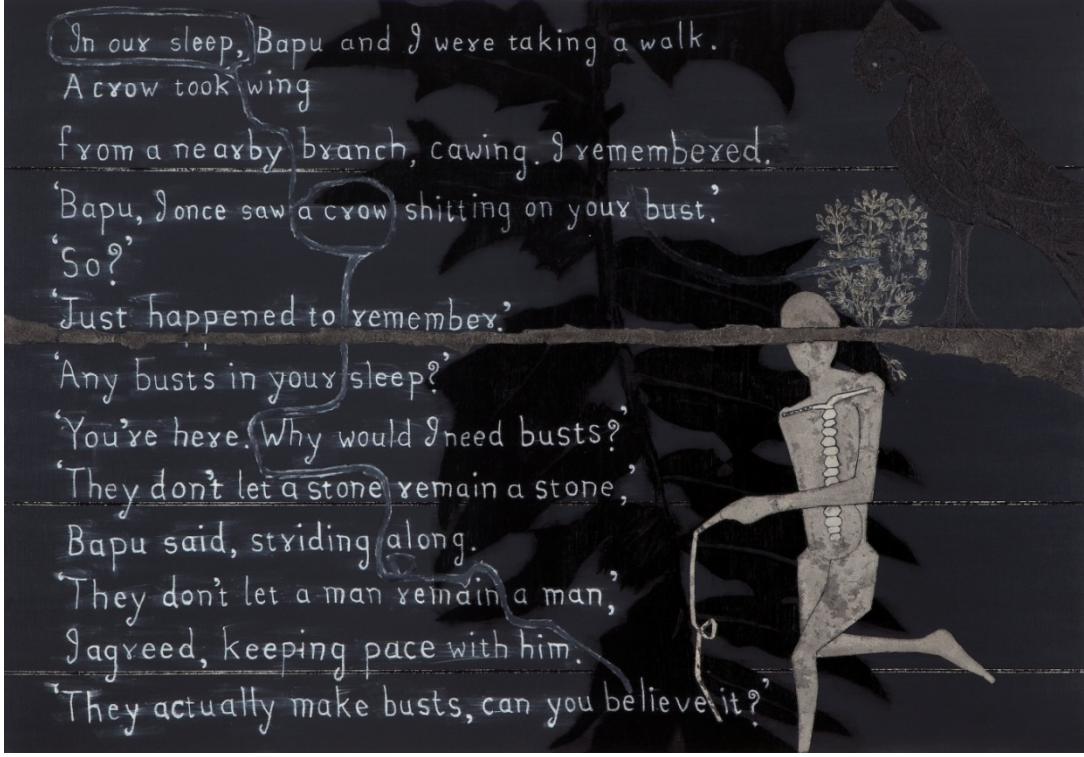 In our sleep, Bapu and I were taking a walk.
A crow took wing
from a nearby branch, cawing. I remembered.
'Bapu, I once saw a crow shitting on your bust.'
'So?'
'Just happened to remember.'
'Any busts in your sleep?'
'You're here. Why would I need busts?'
'They don't let a stone remain a stone,'
Bapu said, striding along.
'They don't let a man remain a man,'
I agreed, keeping pace with him.
'They actually make busts, can you believe it?'